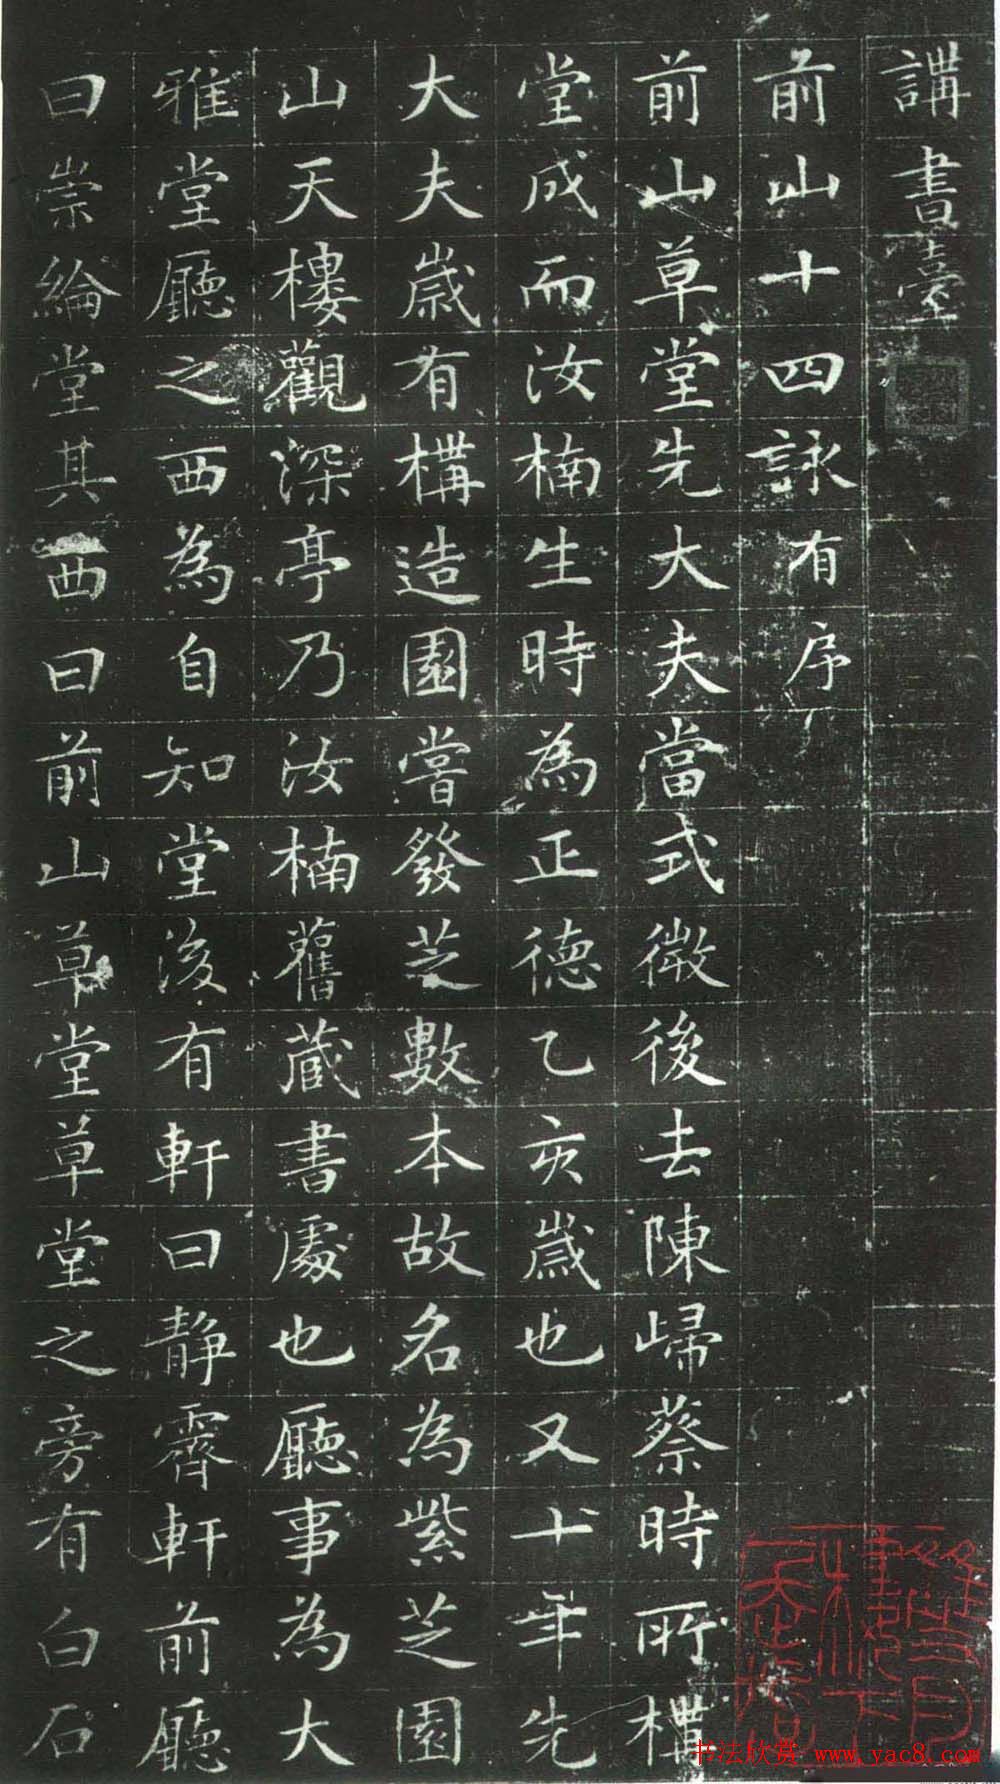 講書臺
前山十四詠有序
前山草堂先大夫當式微後去陳歸蔡時所構
堂成而汝楠生時為正德乙亥歲也又十年先
大夫歲有構造園嘗發芝數本故名為紫芝園
山天樓觀深亭乃汝楠舊藏書處也廳事為大
雅堂廳之西為自知堂後有軒曰靜齋軒前廳
曰崇綸堂其西曰前山草堂草堂之旁有白石
书法欣赏 www.yac8.com